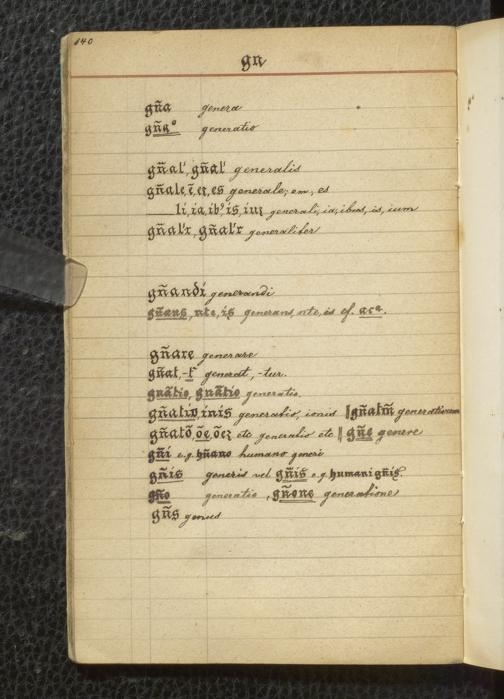 140
gn
gña genera
gñaº generatio
gñal', gñal' generalis
gñale, ē, eʒ, es generale, em, es
li, ia, ibꝰ, is, iuʒ generali, ia, ibus, is, ium
gñal'r, gñal'r generaliter
gñandi generandi
gñans, nte, is generans, nte, is cf. aca.
gñare generare
gñat, -t̄ generat, -tur.
gnātio, gnātio generatio
gñatio, inis generatio, ionis ‖ gñatiū generationum
gñatō, ōe, ōeʒ etc generatio etc ‖ gñe genere
gñi e.g. hūano humano generi
gñis generis vel gñis e.g. humani gñis.
gño generatio, gñone generatione
gñs genus